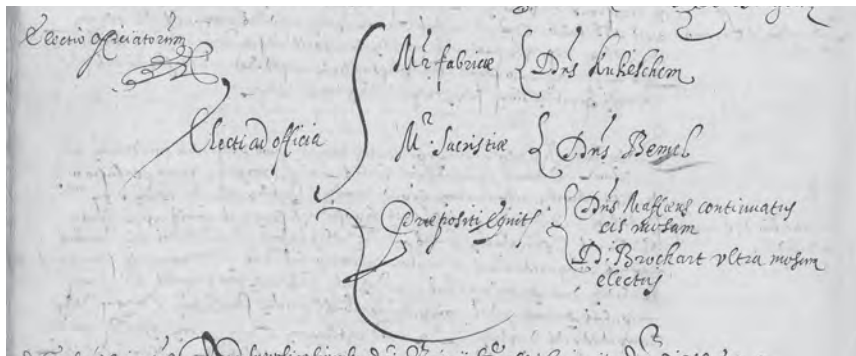 Electio officiatorum
Electi ad officia
Mr fabricæ
Dns
Mr Sacristiæ
Dns Bemel
Præpositi
Dns Massæus continuatus
cis mosam
D: Brockart vltra mosam
electus